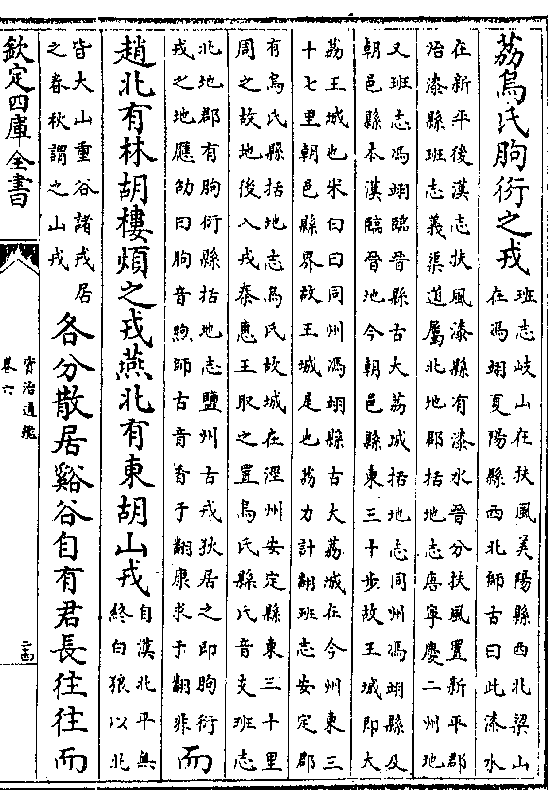 荔烏氏朐衍之戎班志岐山在扶風美陽縣西北梁山
在馮翊夏陽縣西北師古曰此漆水
在新平後漢志扶風漆縣有漆水晉分扶風置新平郡
治漆縣班志義渠道屬北地郡括地志唐寧慶二州地
又班志馮翊臨晉縣古大荔城括地志同州馮翊縣及
朝邑縣本漢臨晉地今朝邑縣東三十步故王城即大
荔王城也宋曰曰同州馮翊縣古大荔城在今州東三
十七里朝邑縣界故王城是也荔力計翻班志安定郡
有烏氏縣括地志烏氏故城在涇州安定縣東三十里
周之故地後入戎秦惠王取之置烏氏縣氏音支班志
北地郡有朐衍縣括地志鹽州古戎狄居之即朐衍
戎之地應劭曰朐音煦師古音香于翻康求于翻非而
趙北有林胡樓煩之戎燕北有東胡山戎自漢北平無
終白狼以北
皆大山重谷諸戎居
之春秋謂之山戎各分散居谿谷自有君長往往而
欽定四庫全書
資治通鑑
卷六
二十四